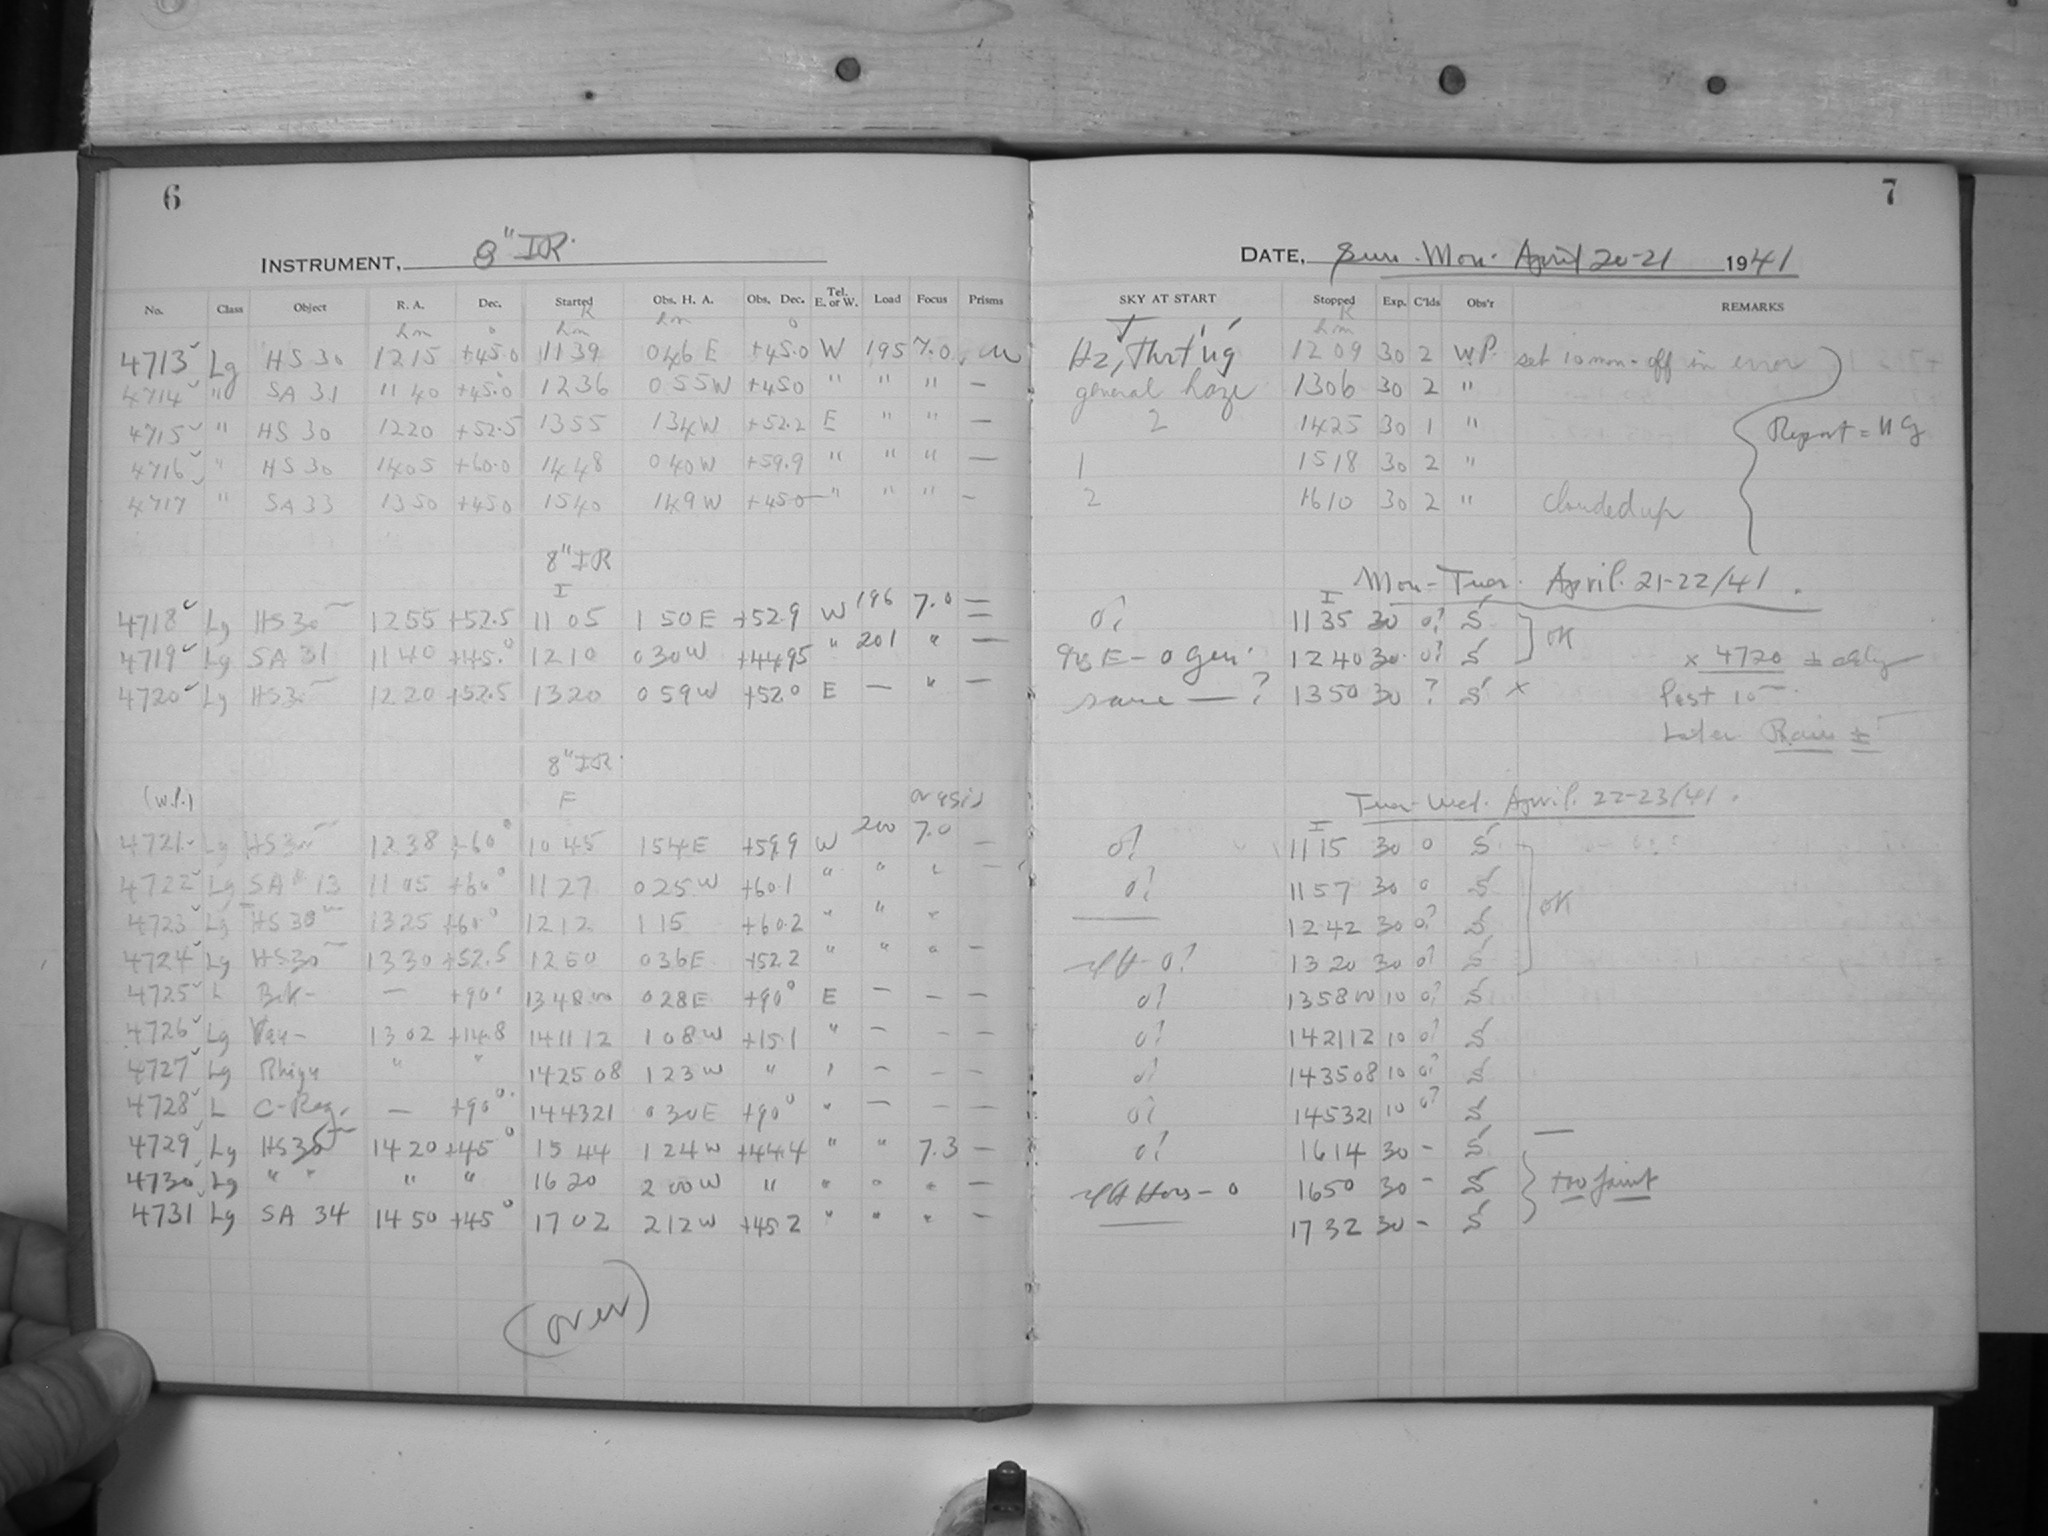 6
INSTRUMENT, 8" IR.
No. Class Object R. A. Dec. Started Obs. H. A. Obs. Dec. Tel. E. or W. Load Focus Prisms
h m ° h m h m °
4713 Lg HS 30 12 15 +45.0 11 39 0 46 E +45.0 W 195 7.0
4714 " SA 31 11 40 +45.0 12 36 0 55 W +45.0 " " " —
4715 " HS 30 12 20 +52.5 13 55 1 34 W +52.2 E " " —
4716 " HS 30 14 05 +60.0 14 48 0 40 W +59.9 " " " —
4717 " SA 33 13 50 +45.0 15 40 1 49 W +45.0 " " " —
8" IR
I
4718 Lg HS 30 12 55 +52.5 11 05 1 50 E +52.9 W 196 7.0 —
4719 Lg SA 31 11 40 +45.° 12 10 0 30 W +44.95 " 201 " —
4720 Lg HS 30 12 20 +52.5 13 20 0 59 W +52.0 E — " —
8" IR.
(W.P.)
4721 Lg HS 30 12 38 +60° 10 45 1 54 E +59.9 W 200 7.0 —
4722 Lg SA 13 11 05 +60° 11 27 0 25 W +60.1 " " " —
4723 Lg HS 30 13 25 +60° 12 12 1 15 +60.2 " " "
4724 Lg HS 30 13 30 +52.5 12 50 0 36 E +52.2 " " " —
4725 L — +90° 13 48 00 0 28 E +90° E — — —
4726 Lg 13 02 +14.8 14 11 12 1 08 W +15.1 " — — —
4727 Lg " " 14 25 08 1 23 W " — — —
4728 L C-Reg. — +90° 14 43 21 0 30 E +90° " — — —
4729 Lg HS 30 14 20 +45° 15 44 1 24 W +44.4 " " 7.3 —
4730 Lg " " " " 16 20 2 00 W " " " " —
4731 Lg SA 34 14 50 +45° 17 02 2 12 W +45.2 " " " —
(over)
7
DATE, Sun. Mon. April 20-21 1941
SKY AT START Stopped Exp. C'lds Obs'r REMARKS
h m
Hz, 12 09 30 2 W.P. set 10 min. off in error
general haze 13 06 30 2 "
2 14 25 30 1 " Report =
1 15 18 30 2 "
2 16 10 30 2 " Clouded up
Mon-Tues. April. 21-22/41.
I
0? 11 35 30 0? S OK
E — 0 Gen. 12 40 30 0? S x 4720
same — ? 13 50 30 ? S x last 10
Later Rain ±
Tues-Wed. April. 22-23/41.
I
0? 11 15 30 0 S
0? 11 57 30 0 S OK
— 12 42 30 0? S
0? 13 20 30 0? S
0? 13 58 00 10 0? S
0? 14 21 12 10 0? S
0? 14 35 08 10 0? S
0? 14 53 21 10 0? S
0? 16 14 30 — S
0 16 50 30 — S too faint
— 17 32 30 — S